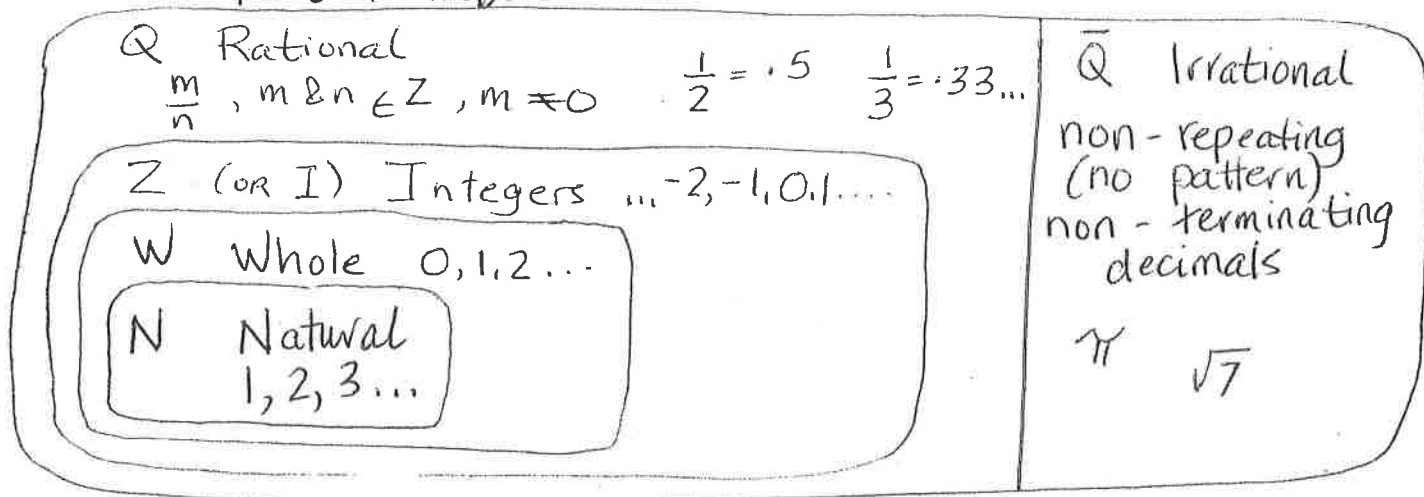 Q Rational
m/n , m & n ∈ Z , m ≠ 0 1/2 = .5 1/3 = .33...
Z (OR I) Integers ...-2,-1,0,1....
W Whole 0,1,2...
N Natural
1,2,3...
Q̄ Irrational
non-repeating
(no pattern)
non-terminating
decimals
π √7